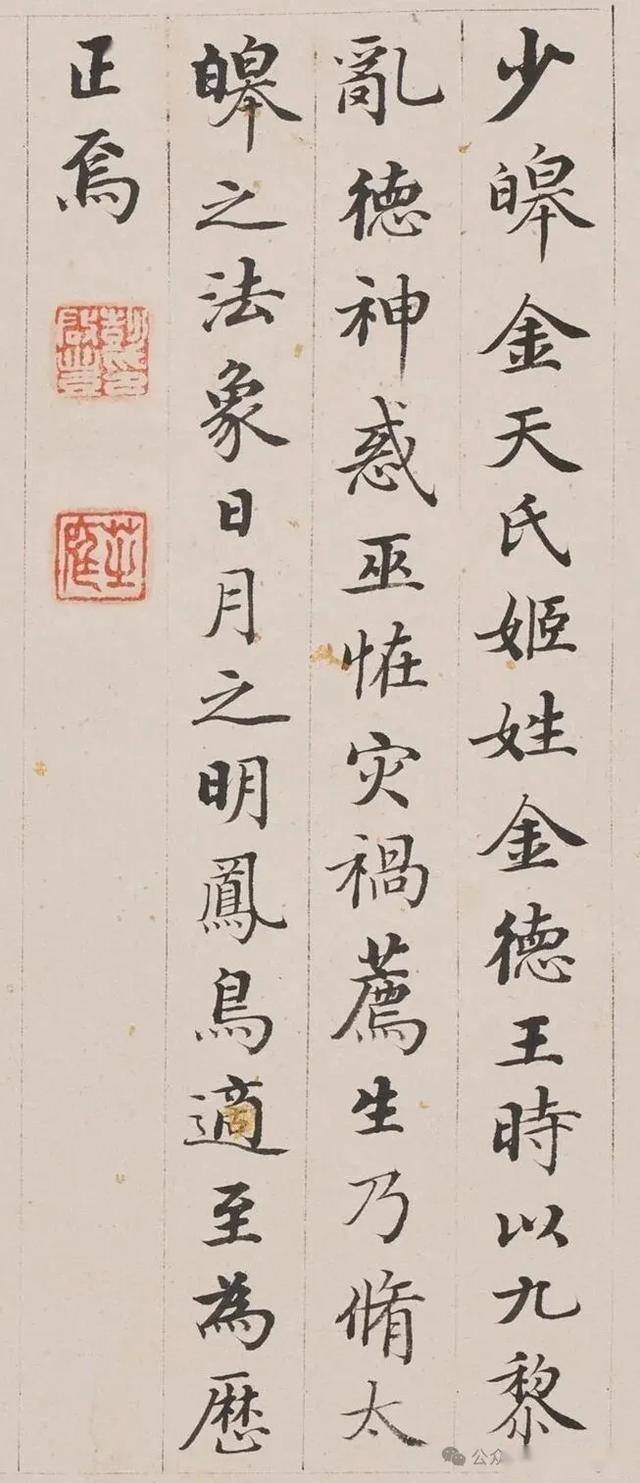 少皞金天氏姬姓金德王時以九黎
亂德神惑巫恠灾禍薦生乃脩太
皞之法象日月之明鳳鳥適至為歷
正焉
彭啟豐印
芝庭
公众